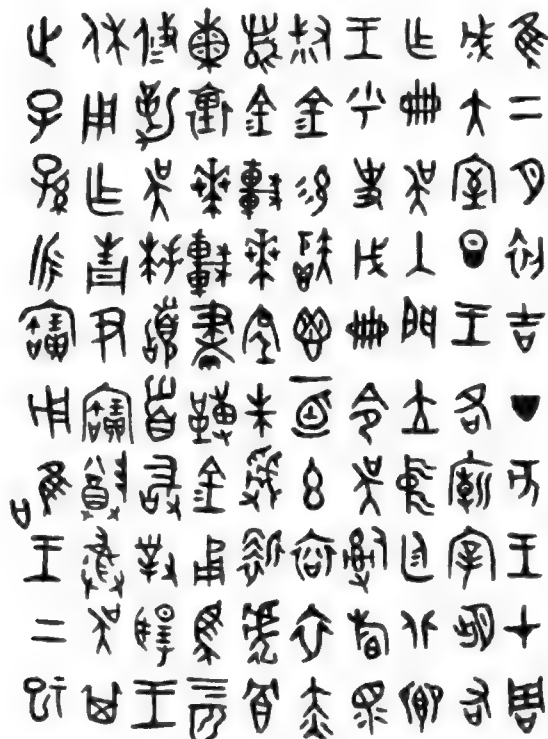 隹二月初吉丁亥王才周
成大室旦王各廟宰朏右
乍冊吳入門立中廷北卿
王乎史戊冊令吳𤔲旃眔
叔金易秬鬯一卣玄袞衣赤
舄金車𠦪㡀朱虢靳虎冟
熏裏𠦪較畫轉金甬馬四匹
攸勒吳拜稽首敢對揚王
休用乍青尹寶尊彝吳其
世子孫永寶用唯王二祀